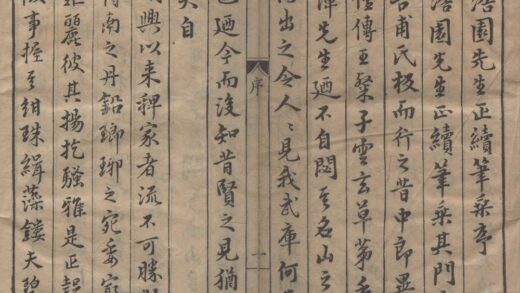 園先生正續筆乘序
園先生正續筆乘其門
甫氏校而行之昔中郎
傳王粲子雲玄草苐
先生迺不自閟其名山之
出之令人〻見我武庫何
序
一
迺今而後知昔賢之見猶
矣自
興以来稗家者流不可勝
南之丹鉛瑯琊之宛委
麗彼其揚扢騷雅是正
事握其紺珠緝藻鏤天碧